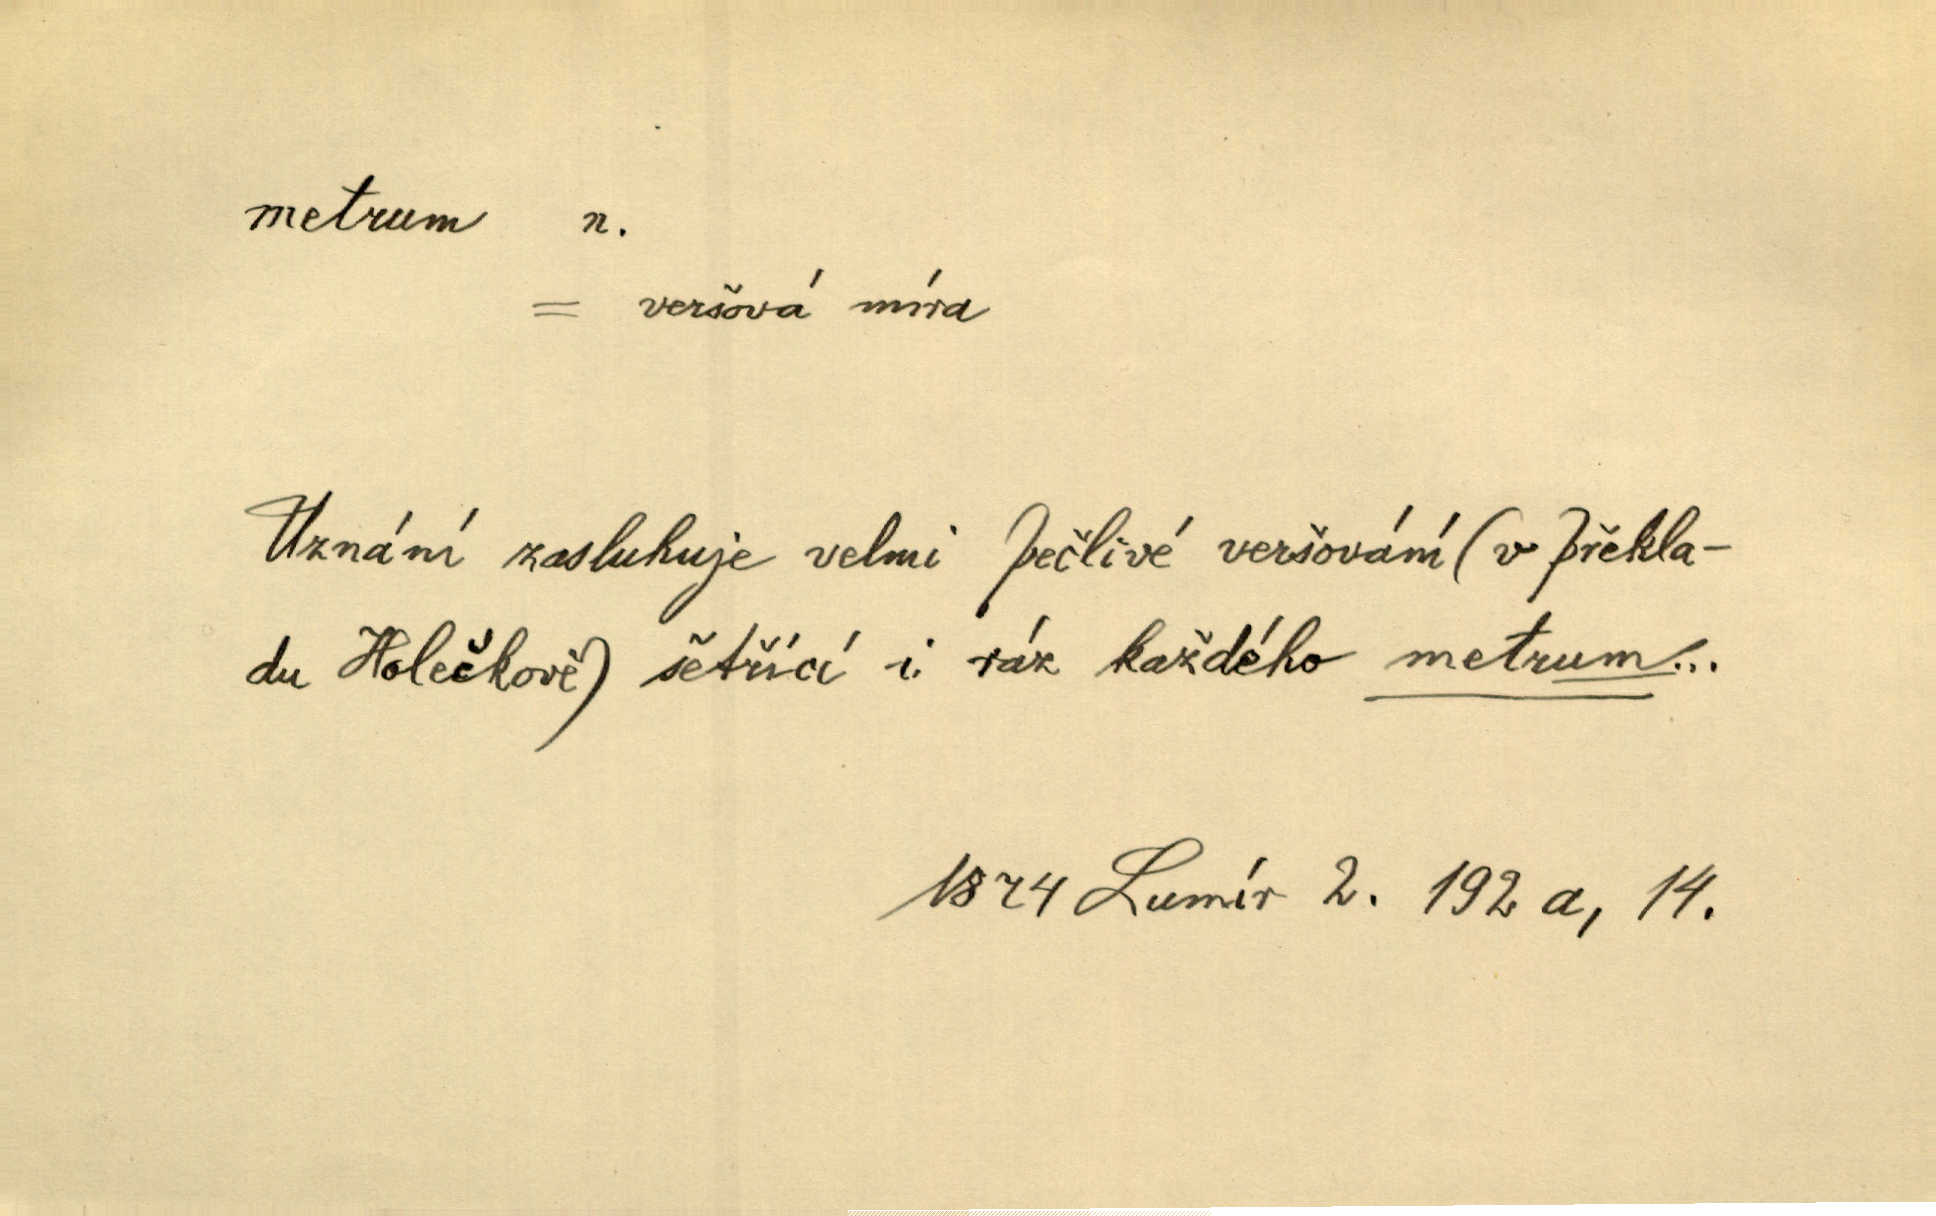 metrum n.
= veršová míra
Uznání zasluhuje velmi pečlivé veršování (v překla-
du Holečkově) šetřící i ráz každého metrum...
1874 Lumír 2. 192 a, 14.